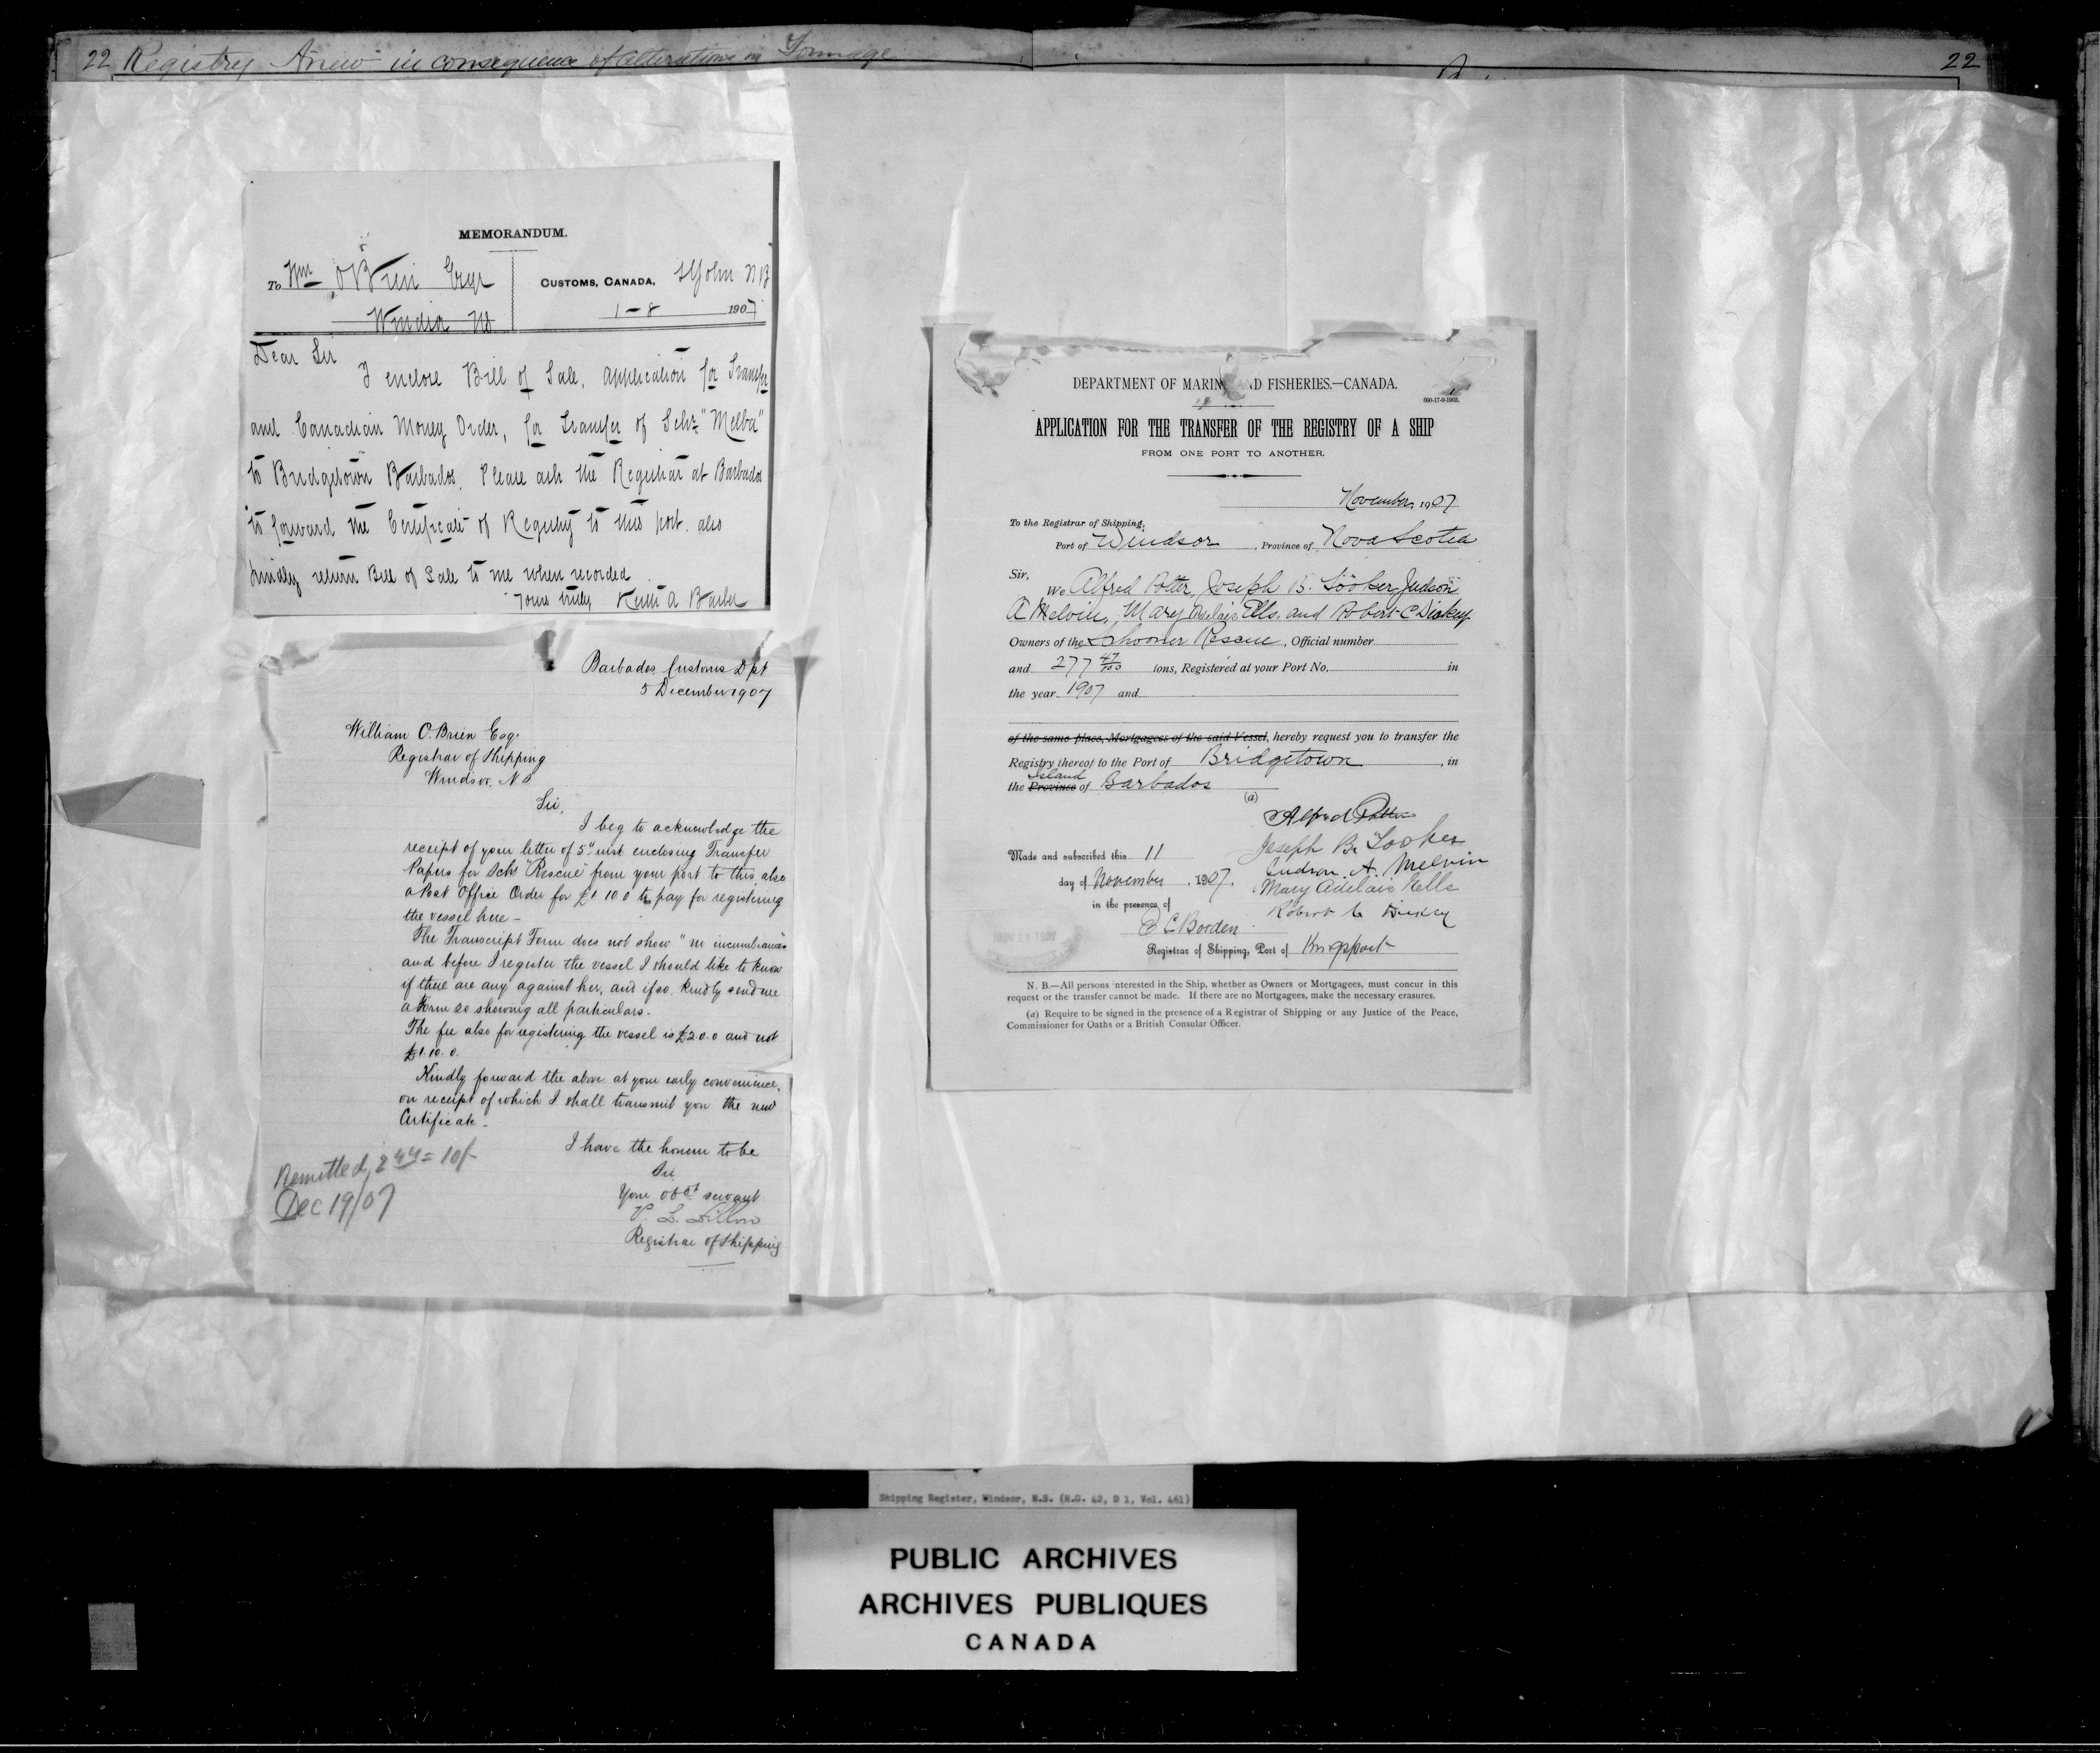 22 Registry Anew in consequence of alterations in Tonnage
22
MEMORANDUM.
To Wm O'Brien Esqr
Windsor NS
CUSTOMS, CANADA, St John NB
1-8 1907
Dear Sir
I enclose Bill of Sale, application for Transfer
and Canadian Money Order, for Transfer of Schr "Melba"
to Bridgetown Barbados. Please ask the Registrar at Barbados
to forward the Certificate of Registry to this port. also
kindly return Bill of Sale to me when recorded
Yours truly Keith A Barber
Barbados Customs Dpt
5 December 1907
William O'Brien Esq.
Registrar of Shipping
Windsor, N S
Sir,
I beg to acknowledge the
receipt of your letter of 5" inst enclosing Transfer
Papers for Schr "Rescue" from your port to this, also
a Post Office Order for £1.10.0 to pay for registering
the vessel here -
The Transcript Form does not show "no incumbrances"
and before I register the vessel I should like to know
if there are any against her, and if so kindly send me
a Form so showing all particulars -
The fee also for registering the vessel is £2.0.0 and not
£1.10.0.
Kindly forward the above at your early convenience,
on receipt of which I shall transmit you the new
Certificate -
I have the honour to be
Sir
Your obdt servant
Registrar of Shipping
Remitted, 2 44 = 10/-
Dec 19/07
DEPARTMENT OF MARINE AND FISHERIES.—CANADA.
APPLICATION FOR THE TRANSFER OF THE REGISTRY OF A SHIP
FROM ONE PORT TO ANOTHER.
November, 1907
To the Registrar of Shipping,
Port of Windsor, Province of Nova Scotia
Sir,
We Alfred Potter, Joseph B. Tooker, Judson
A Melvin, Mary Adelais Ells, and Robert C Dickey
Owners of the Schooner Rescue, Official number
and 277 47/100 tons, Registered at your Port No. in
the year 1907 and
of the same place, Mortgagees of the said Vessel, hereby request you to transfer the
Registry thereof to the Port of Bridgetown, in
Island
the Province of Barbados
(a)
Alfred Potter
Joseph B. Tooker
Judson. A. Melvin
Mary Adelais Kells
Robert C Dickey
Made and subscribed this 11
day of November, 1907.
in the presence of
D C Borden
Registrar of Shipping, Port of Kingsport
NOV 21 1907
N. B.—All persons interested in the Ship, whether as Owners or Mortgagees, must concur in this
request or the transfer cannot be made. If there are no Mortgagees, make the necessary erasures.
(a) Require to be signed in the presence of a Registrar of Shipping or any Justice of the Peace,
Commissioner for Oaths or a British Consular Officer.
Shipping Register, Windsor, N.S. (R.G. 42, D 1, Vol. 461)
PUBLIC ARCHIVES
ARCHIVES PUBLIQUES
CANADA